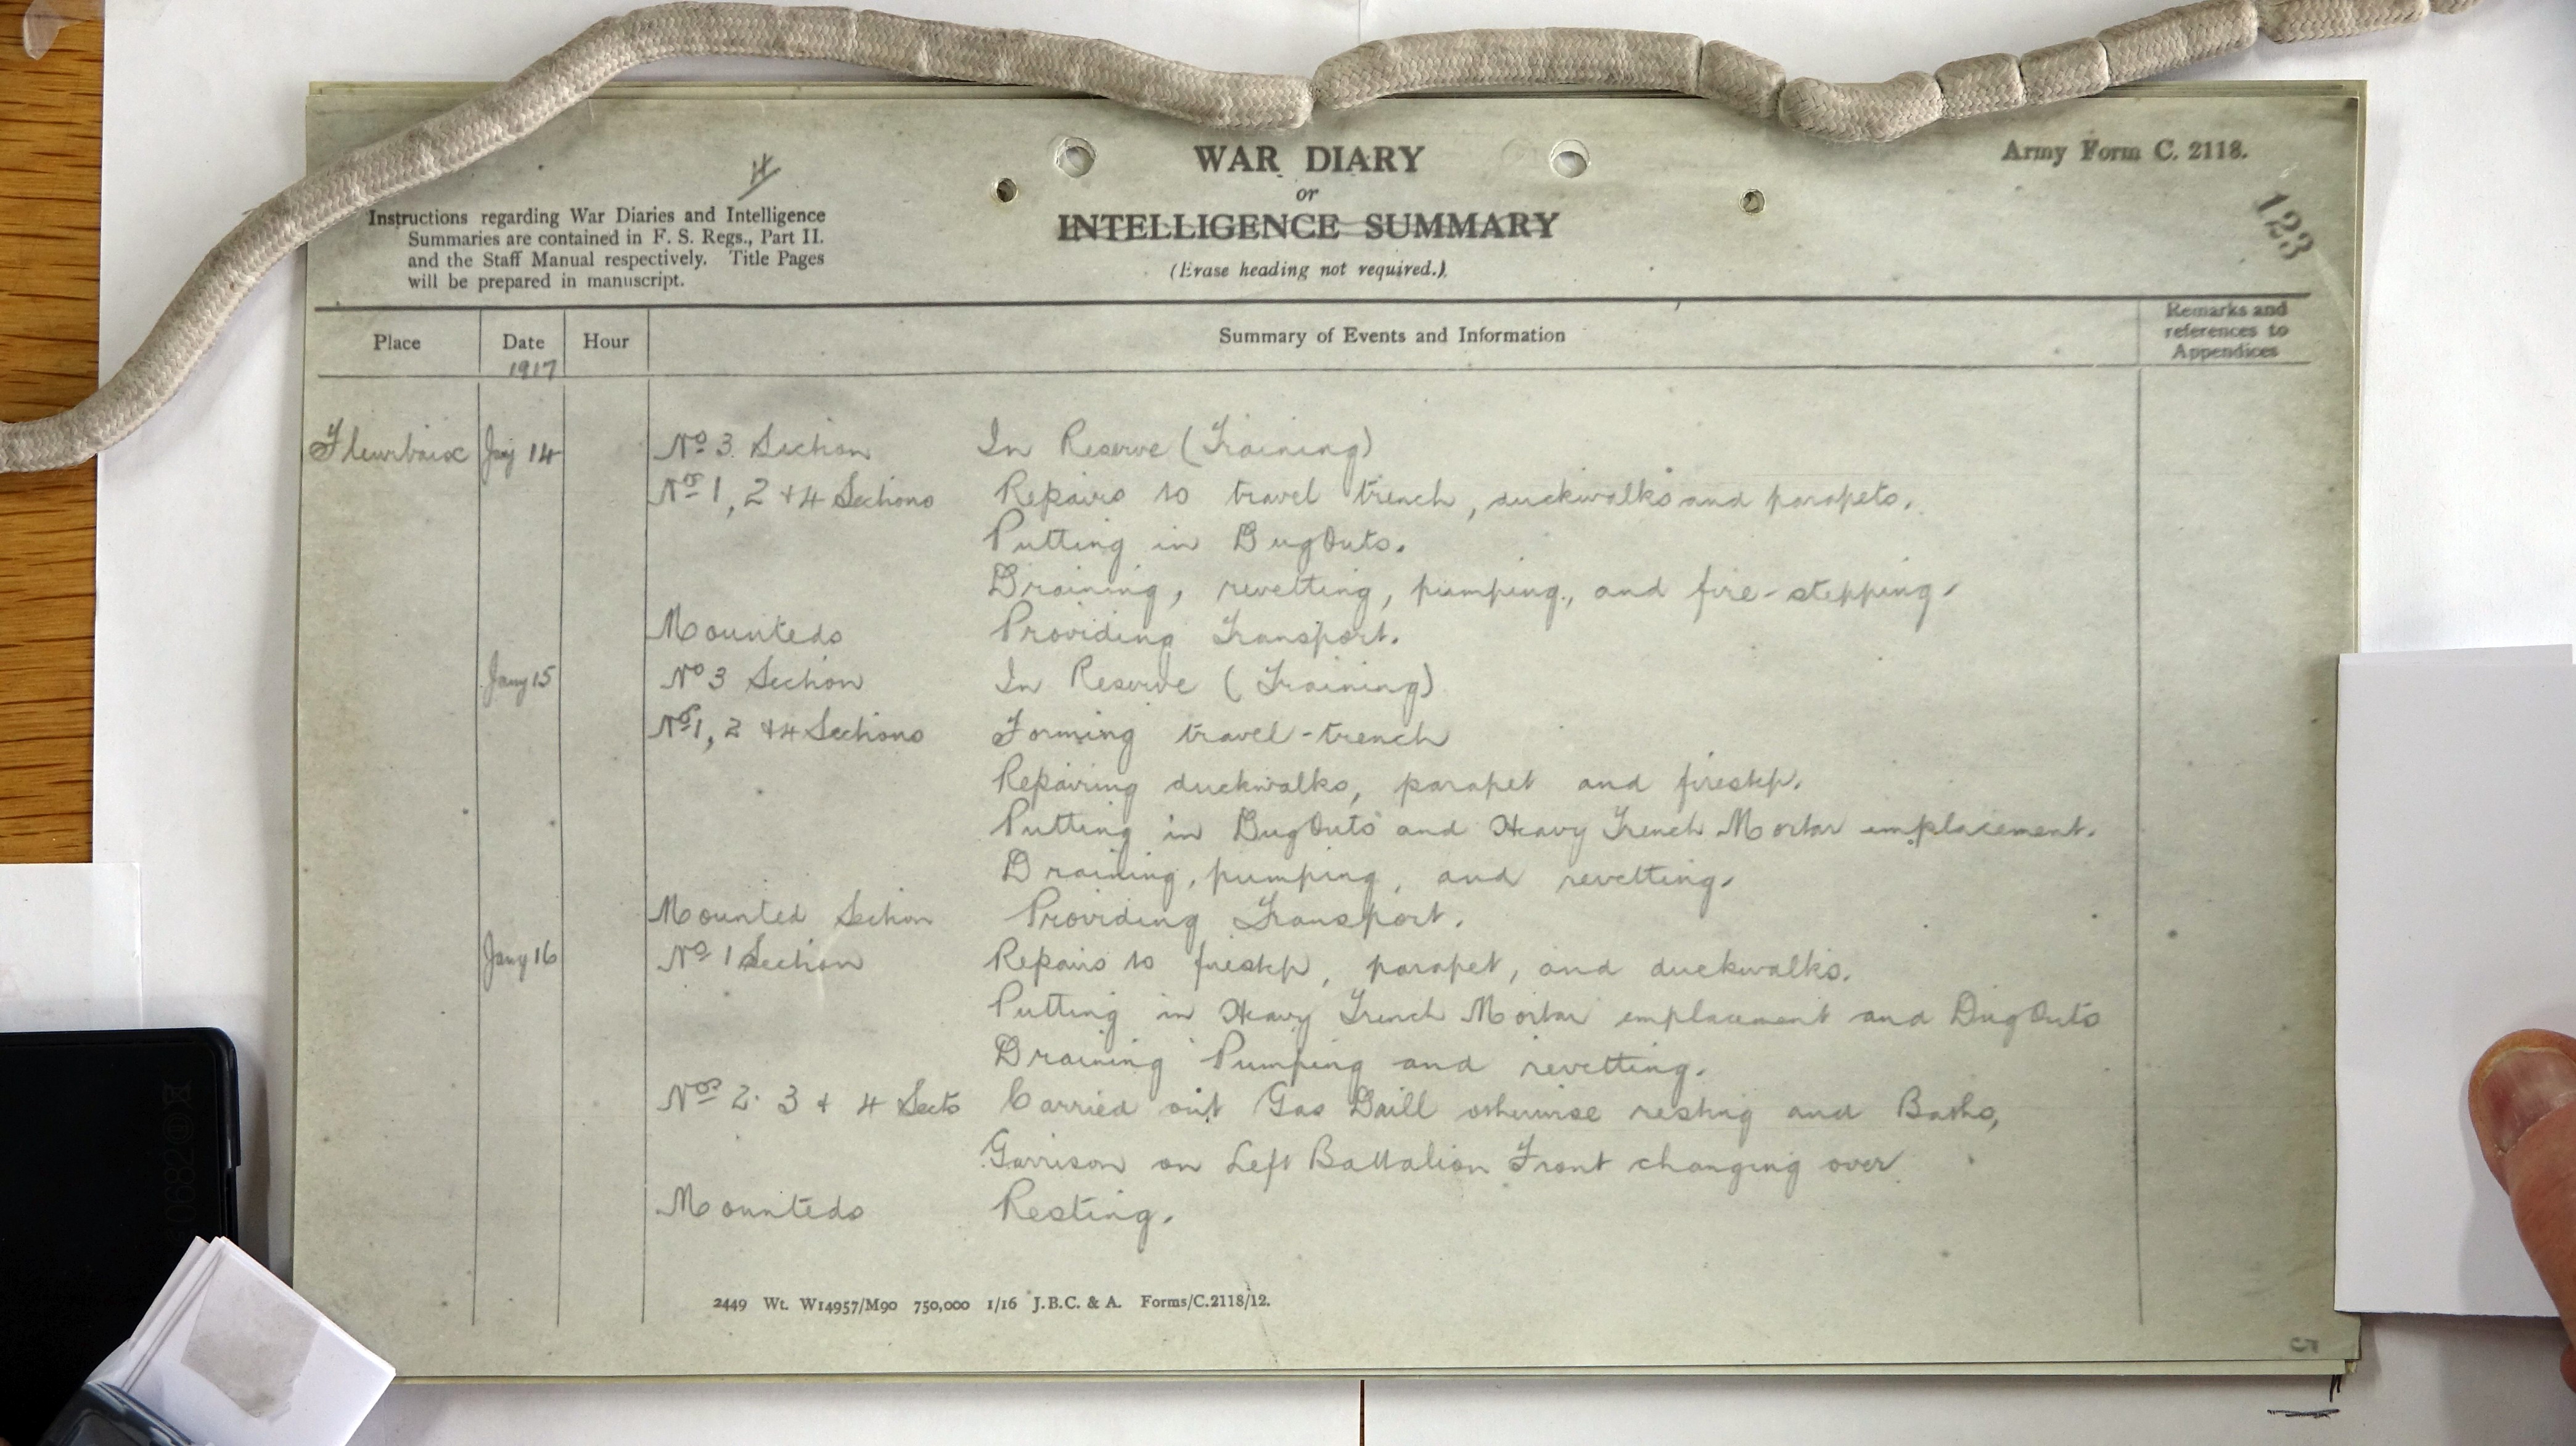 4
WAR DIARY
or
INTELLIGENCE SUMMARY
(Erase heading not required.)
Army Form C. 2118.
123
Instructions regarding War Diaries and Intelligence
Summaries are contained in F. S. Regs., Part II.
and the Staff Manual respectively. Title Pages
will be prepared in manuscript.
Place Date Hour Summary of Events and Information Remarks and references to Appendices
1917
Fleurbaix Jany 14 No 3 Section In Reserve (Training)
Nos 1, 2 & 4 Sections Repairs to travel trench, duckwalks and parapets.
Putting in DugOuts.
Draining, revetting, pumping, and fire-stepping.
Mounteds Providing Transport.
Jany 15 No 3 Section In Reserve (Training)
Nos 1, 2 & 4 Sections Forming travel-trench
Repairing duckwalks, parapet and firestep.
Putting in DugOuts and Heavy Trench Mortar emplacement.
Draining, pumping, and revetting.
Mounted Section Providing Transport.
Jany 16 No 1 Section Repairs to firestep, parapet, and duckwalks.
Putting in Heavy Trench Mortar emplacement and DugOuts
Draining Pumping and revetting.
Nos 2. 3 & 4 Sects Carried out Gas Drill otherwise resting and Baths,
Garrison on Left Battalion Front changing over
Mounteds Resting.
2449 Wt. W14957/M90 750,000 1/16 J.B.C. & A. Forms/C.2118/12.
5